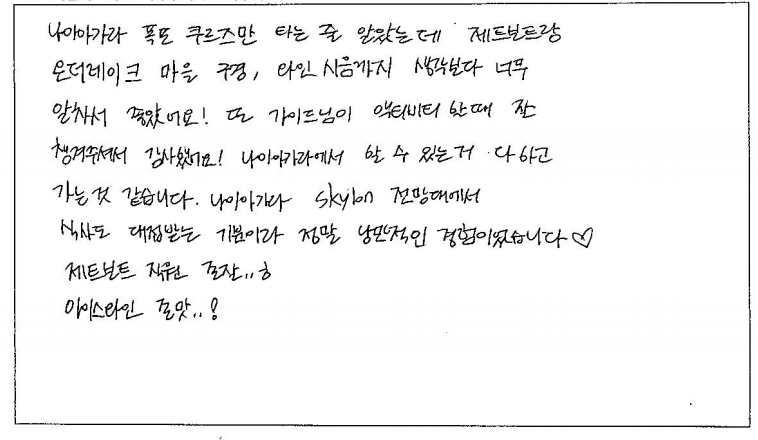 나이아가라 폭포 쿠르즈만 타는 줄 알았는데 제트보트랑
온더레이크 마을 구경, 와인 시음까지 생각보다 너무
알차서 좋았어요! 또 가이드님이 액티비티 할때 잘
챙겨주셔서 감사했어요! 나이아가라에서 할 수 있는거 다 하고
가는것 같습니다. 나이아가라 skylon 전망대에서
식사도 대접받는 기분이라 정말 낭만적인 경험이었습니다 ♡
제트보트 직원 존잘..ㅎ
아이스와인 존맛..!